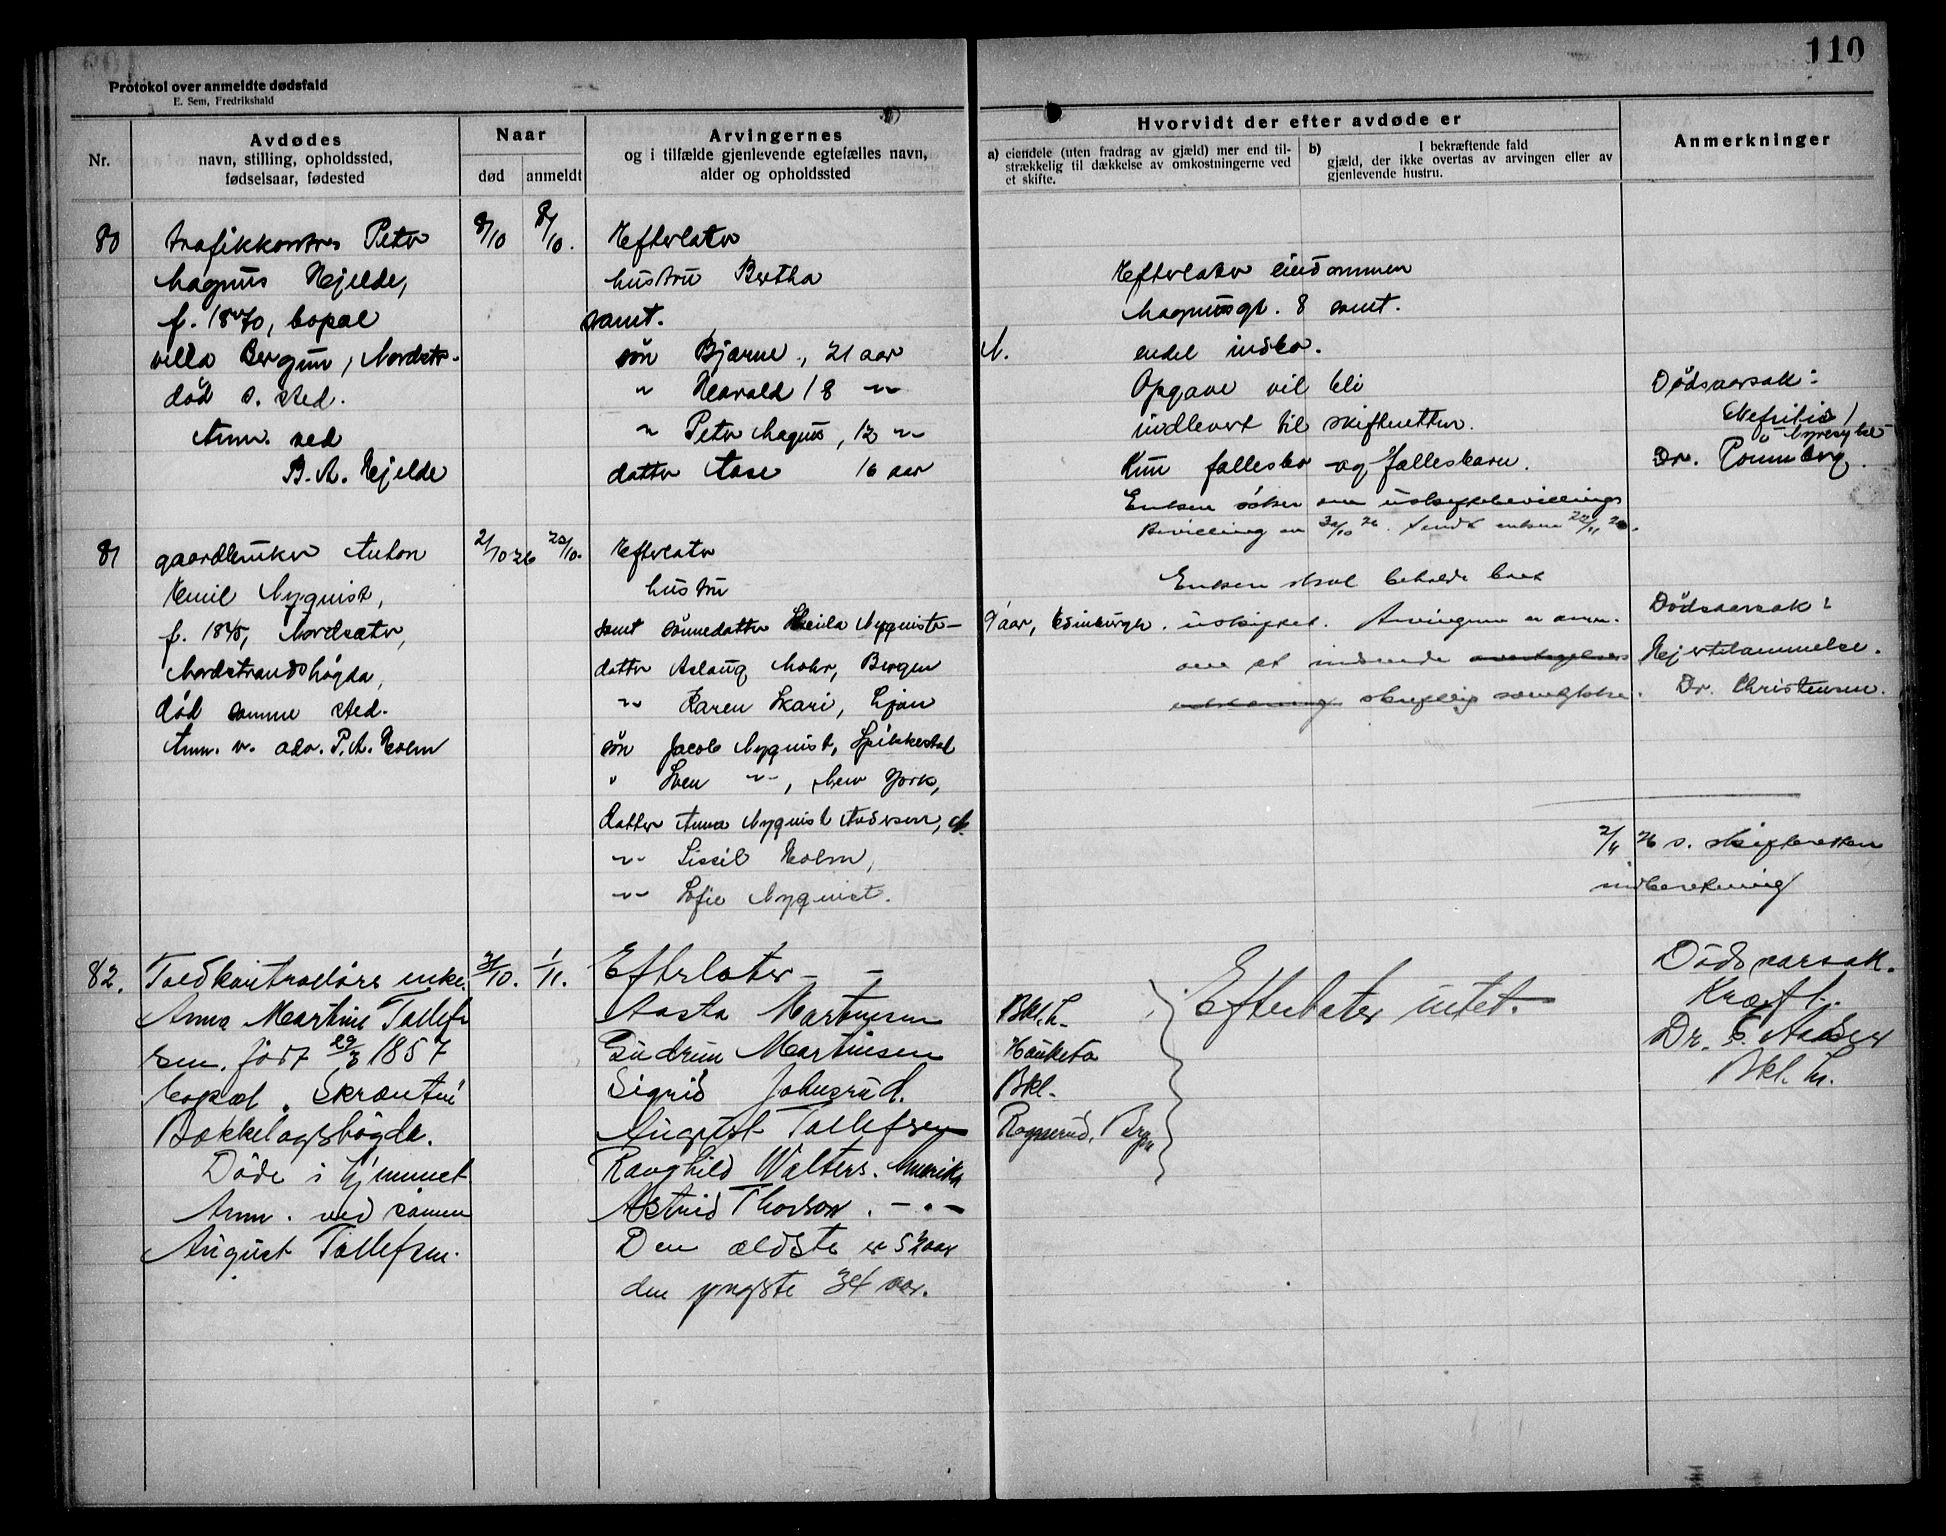 110
Protokol over anmeldte dødsfald
E. Sem, Fredrikshald
Nr.
Avdødes
navn, stilling, opholdssted,
fødselsaar, fødested
Naar
død anmeldt
Arvingernes
og i tilfælde gjenlevende egtefælles navn,
alder og opholdssted
Hvorvidt der efter avdøde er
a) eiendele (uten fradrag av gjæld) mer end til-
strækkelig til dækkelse av omkostningerne ved
et skifte.
b) I bekræftende fald
gjæld, der ikke overtas av arvingen eller av
gjenlevende hustru.
Anmerkninger
80 trafikkontrol Peter
Magnus Hjelde,
f. 1870, bopæl
villa Bergun, Nordstr.
død s. sted.
Anm. ved
B. A. Hjelde
8/10 8/10.
Efterlater
hustru Bertha
samt.
søn Bjarne, 21 aar
" Harald 18 "
" Peter Magnus, 12 "
datter Aase 16 aar
N.
Efterlater eiendommen
Magnusgt. 8 samt.
endel indbo.
Opgave vil bli
indlevert til skifteretten.
Kun fællesbo og fællesbarn.
Enken søker om uskiftebevilling
Bevilling av 30/10 26. Sendt enken
Dødsaarsak:
Nefritis
Nyresyke
Dr.
81 gaardbruker Anton
Emil Nyquist,
f. 1845, Nordsæter,
Nordstrandshøgda,
død samme sted.
Anm. v. adv. P. A. Holm
21/10 26 22/10.
Efterlater
hustru
samt sønnedatter Nyquist
9 aar, Edinburgh.
datter Aslaug Mohr, Bergen
" Karen Skari, Ljan
søn Jacob Nyquist, Spikkestad
" Sven " , New York,
datter Anna Nyquist Andersen, N.
" Sissil Holm,
" Sofie Nyquist.
Enken skal beholde boet
uskiftet. Arvingerne er anm.
om at indsende
skriftlig samtykke.
Dødsaarsak:
Hjertelammelse.
Dr. Christensen.
2/11 26 s. skifteretten
indberetning
82. Toldkontrollørs enke
Anna Martine Tollef
sen. født 29/3 1857
bopæl. Skrænten
Bækkelagshøgda.
Døde i hjemmet
Anm. ved sønnen
August Tollefsen.
31/10. 1/11.
Efterlater - -
Aasta Martinsen Bkl. h.
Gudrun Martinsen Hauketo
Sigrid Johnsrud. Bkl.
August Tollefsen
Ragnhild Walters. Amerika
Astrid Thorson. - " -
Den ældste er 52 aar
den yngste 34 aar.
Efterlater intet.
Dødsaarsak.
Kræft.
Dr.
Bkl. h.